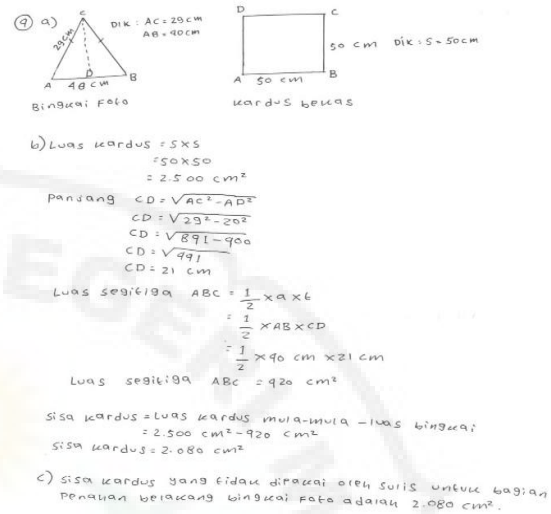 ④ a)
C
DIK : AC = 29 cm
AB = 40 cm
29 cm
D
A 40 cm B
Bingkai Foto
D C
50 cm DIK : S = 50 cm
A 50 cm B
kardus bekas
b) Luas kardus = S x S
= 50 x 50
= 2.500 cm²
Panjang CD = √AC² - AD²
CD = √29² - 20²
CD = √841 - 400
CD = √441
CD = 21 cm
Luas segitiga ABC = 1/2 x a x t
= 1/2 x AB x CD
= 1/2 x 40 cm x 21 cm
Luas segitiga ABC = 420 cm²
Sisa kardus = Luas kardus mula-mula - luas bingkai
= 2.500 cm² - 420 cm²
Sisa kardus = 2.080 cm²
c) Sisa kardus yang tidak dipakai oleh Sulis untuk bagian
Penahan belakang bingkai Foto adalah 2.080 cm².